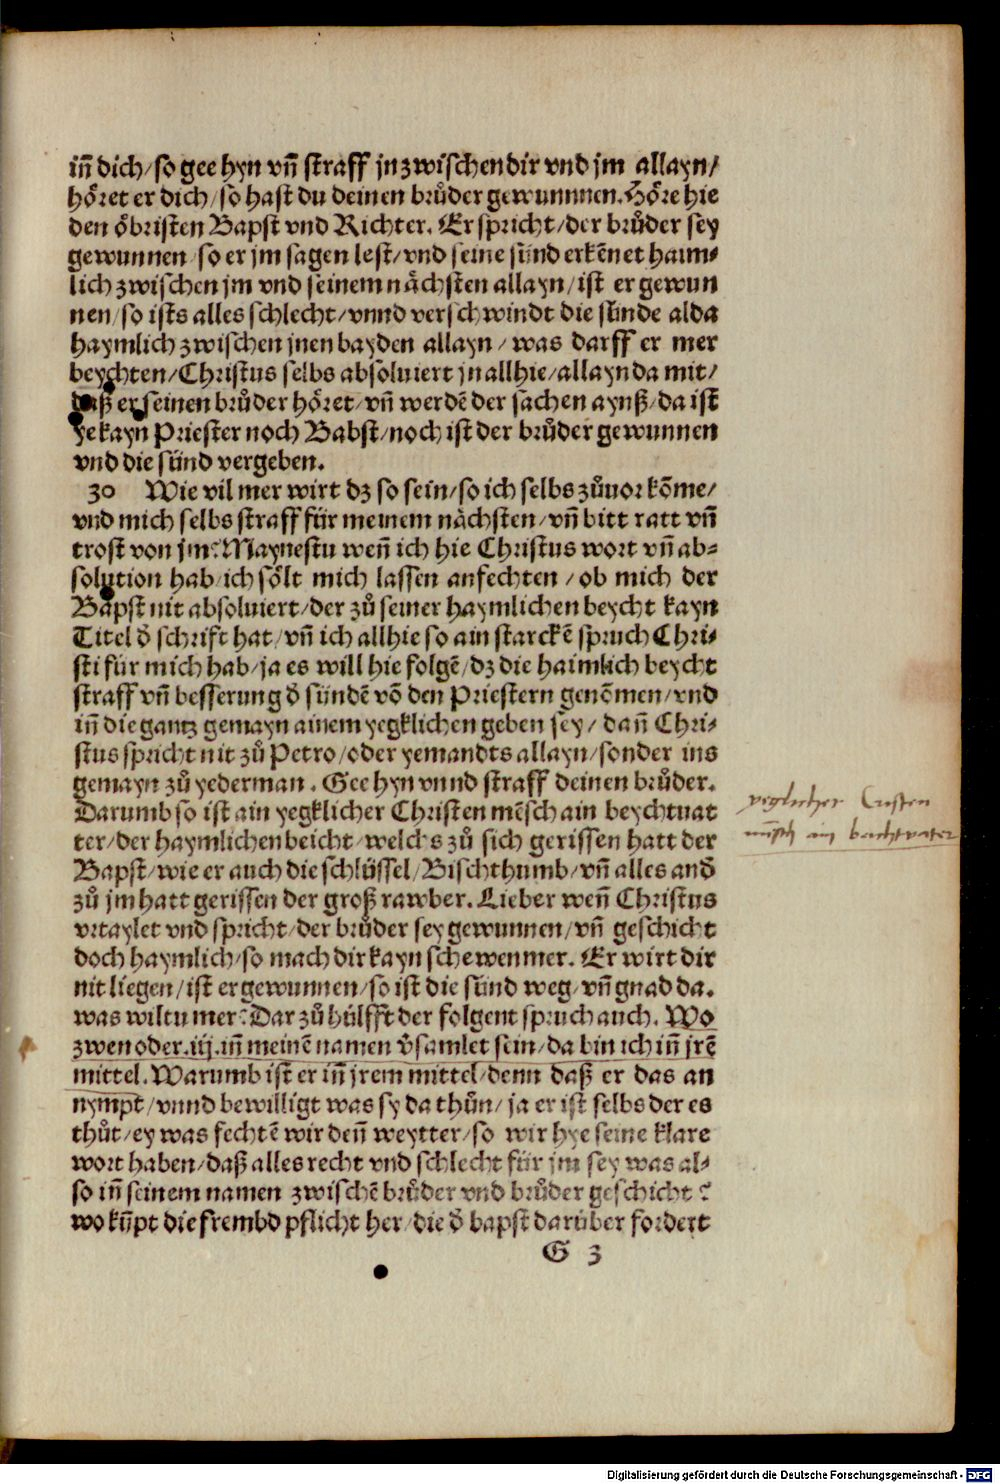 iñ dich/so gee hyn vñ straff jn zwischen dir vnd jm allayn/
höret er dich/so hast du deinen brůder gewunnnen. Höre hie
den öbristen Bapst vnd Richter. Er spricht/der brůder sey
gewunnen/so er jm sagen lest/vnd seine sünd erkẽnet haim⸗
lich zwischen jm vnd seinem nächsten allayn/ist er gewun
nen/so ists alles schlecht/vnnd verschwindt die sünde alda
haymlich zwischen jnen bayden allayn/was darff er mer
beychten/Christus selbs absoluiert jn allhie/allayn da mit/
daß er seinen brůder höret/vñ werdẽ der sachen aynß/da ist
ye kayn Priester noch Babst/noch ist der brůder gewunnen
vnd die sünd vergeben.
30 Wie vil mer wirt dz so sein/so ich selbs zůuor kõme/
vnd mich selbs straff für meinem nächsten/vñ bitt ratt vñ
trost von jm? Maynestu weñ ich hie Christus wort vñ ab⸗
solution hab/ich sölt mich lassen anfechten/ob mich der
Bapst nit absoluiert/der zů seiner haymlichen beycht kayn
Titel d̓ schrift hat/vñ ich allhie so ain starckẽ spruch Chri⸗
sti für mich hab/ja es will hie folgẽ/dz die haimlich beycht
straff vñ besserung d̓ sündẽ võ den Priestern genõmen/vnd
iñ die gantz gemayn ainem yegklichen geben sey/dañ Chri⸗
stus spricht nit zů Petro/oder yemandts allayn/sonder ins
gemayn zů yederman. Gee hyn vnnd straff deinen brůder.
Darumb so ist ain yegklicher Christen mẽsch ain beychtuat
ter/der haymlichen beicht/welchs zů sich gerissen hatt der
Bapst/wie er auch die schlüssel/Bischthumb/vñ alles and̓
zů jm hatt gerissen der groß rawber. Lieber weñ Christus
vrtaylet vnd spricht/der brůder sey gewunnen/vñ geschicht
doch haymlich/so mach dir kayn schewen mer. Er wirt dir
nit liegen/ist er gewunnen/so ist die sünd weg/vñ gnad da.
was wiltu mer? Dar zů hülfft der folgent spruch auch. Wo
zwen oder .iij. iñ meinẽ namen v̓samlet sein/da bin ich iñ jrẽ
mittel. Warumb ist er iñ jrem mittel/denn daß er das an
nympt/vnnd bewilligt was sy da thůn/ja er ist selbs der es
thůt/ey was fechtẽ wir deñ weytter/so wir hye seine klare
wort haben/daß alles recht vnd schlecht für jm sey was al⸗
so iñ seinem namen zwischẽ brůder vnd brůder geschicht?
wo kũpt die frembd pflicht her/die d̓ bapst darüber fordert
G 3
yeglicher Cristen
mẽsch ain beichtvater
Digitalisierung gefördert durch die Deutsche Forschungsgemeinschaft - DFG